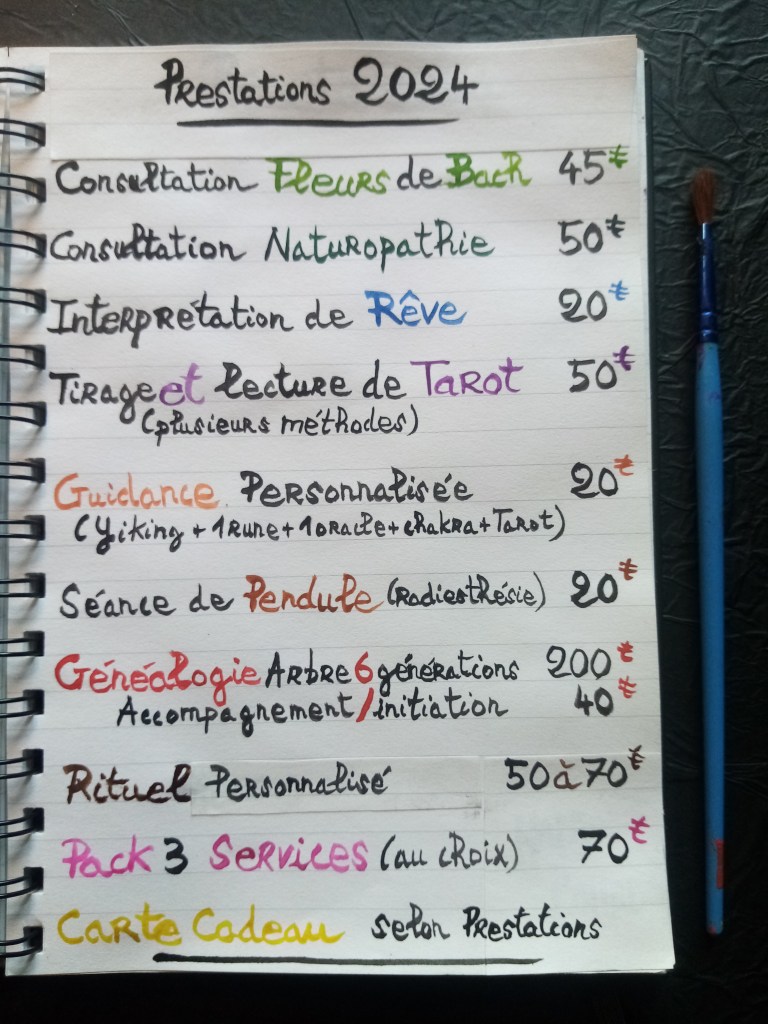 Prestations 2024
Consultation Fleurs de Bach 45€
Consultation Naturopathie 50€
Interprétation de Rêve 20€
Tirage et lecture de Tarot 50€
(plusieurs méthodes)
Guidance Personnalisée 20€
(Yiking + 1 Rune + 1 oracle + chakra + Tarot)
Séance de Pendule (Radiesthésie) 20€
Généalogie Arbre 6 générations 200€
Accompagnement/initiation 40€
Rituel Personnalisé 50 à 70€
Pack 3 Services (au choix) 70€
Carte Cadeau selon Prestations